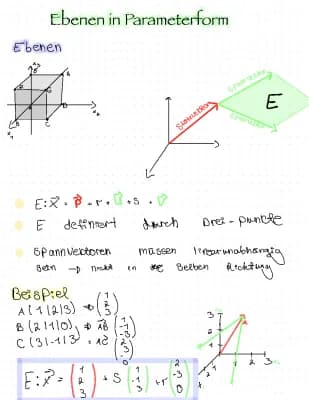 Ebenen in Parameterform
Ebenen
Spannvektor
Stützvektor
E
Spannvektor
E: x⃗ = p⃗ + r · u⃗ + s · v⃗
E definiert durch Drei-punkte
Spannvektoren müssen linear unabhängig
sein → nicht in die selben Richtung
Beispiel
A(1|2|3)
B(2|1|0) → AB
C(3|-1|3) → AC
E: x⃗ = (1 2 3) + s (1 -1 -3) + r (2 -3 0)